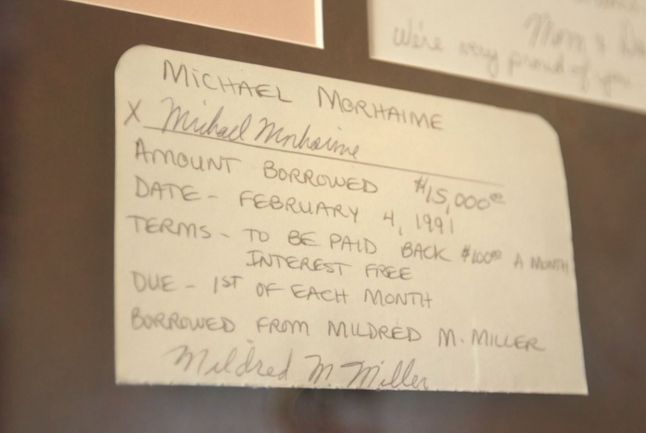 Mom &
We're very proud of you
MICHAEL MORHAIME
X Michael Morhaime
AMOUNT BORROWED $15,000⁰⁰
DATE - FEBRUARY 4, 1991
TERMS - TO BE PAID BACK $100⁰⁰ A MONTH
INTEREST FREE
DUE - 1ST OF EACH MONTH
BORROWED FROM MILDRED M. MILLER
Mildred M. Miller